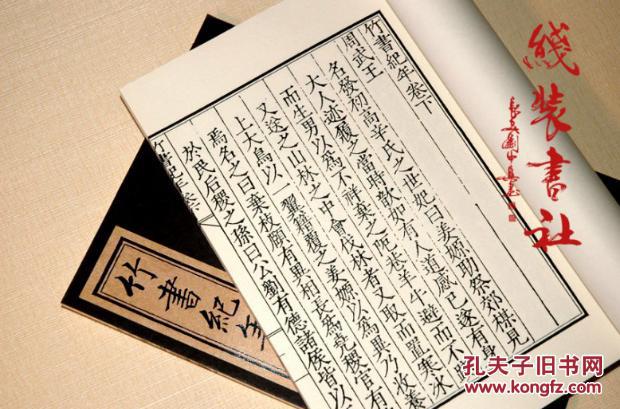 竹書紀年卷下
周武王
名發初高辛氏之世妃曰姜嫄助祭郊禖見
大人迹履之當時歆如有人道感己遂有身
而生男以爲不祥棄之阨巷羊牛避而不
又送之山林之中會伐林者又取而置寒冰
上大鳥以一翼藉覆之姜嫄以爲異乃收養
焉名之曰棄枝頤有異相長爲堯稷官有
於民后稷之孫曰公劉有德諸侯皆以
竹書紀年卷
竹書紀年
綫装書社
孔夫子旧书网
www.kongfz.com